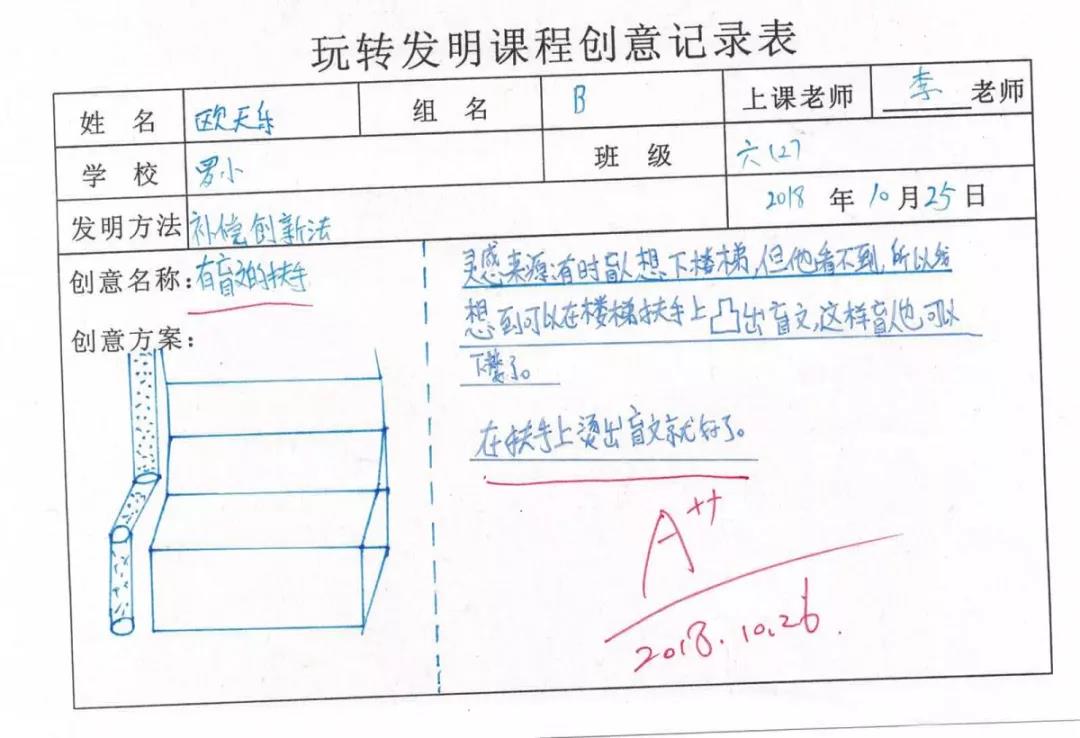 玩转发明课程创意记录表
姓 名 欧天乐 组 名 B 上课老师 李 老师
学 校 罗小 班 级 六(2)
发明方法 补偿创新法 2018 年 10 月 25 日
创意名称:有盲文的扶手
创意方案:
灵感来源:有时盲人想下楼梯,但他看不到,所以我
想到可以在楼梯扶手上凸出盲文,这样盲人也可以
下楼了。
在扶手上烫出盲文就好了。
A++
2018.10.26.